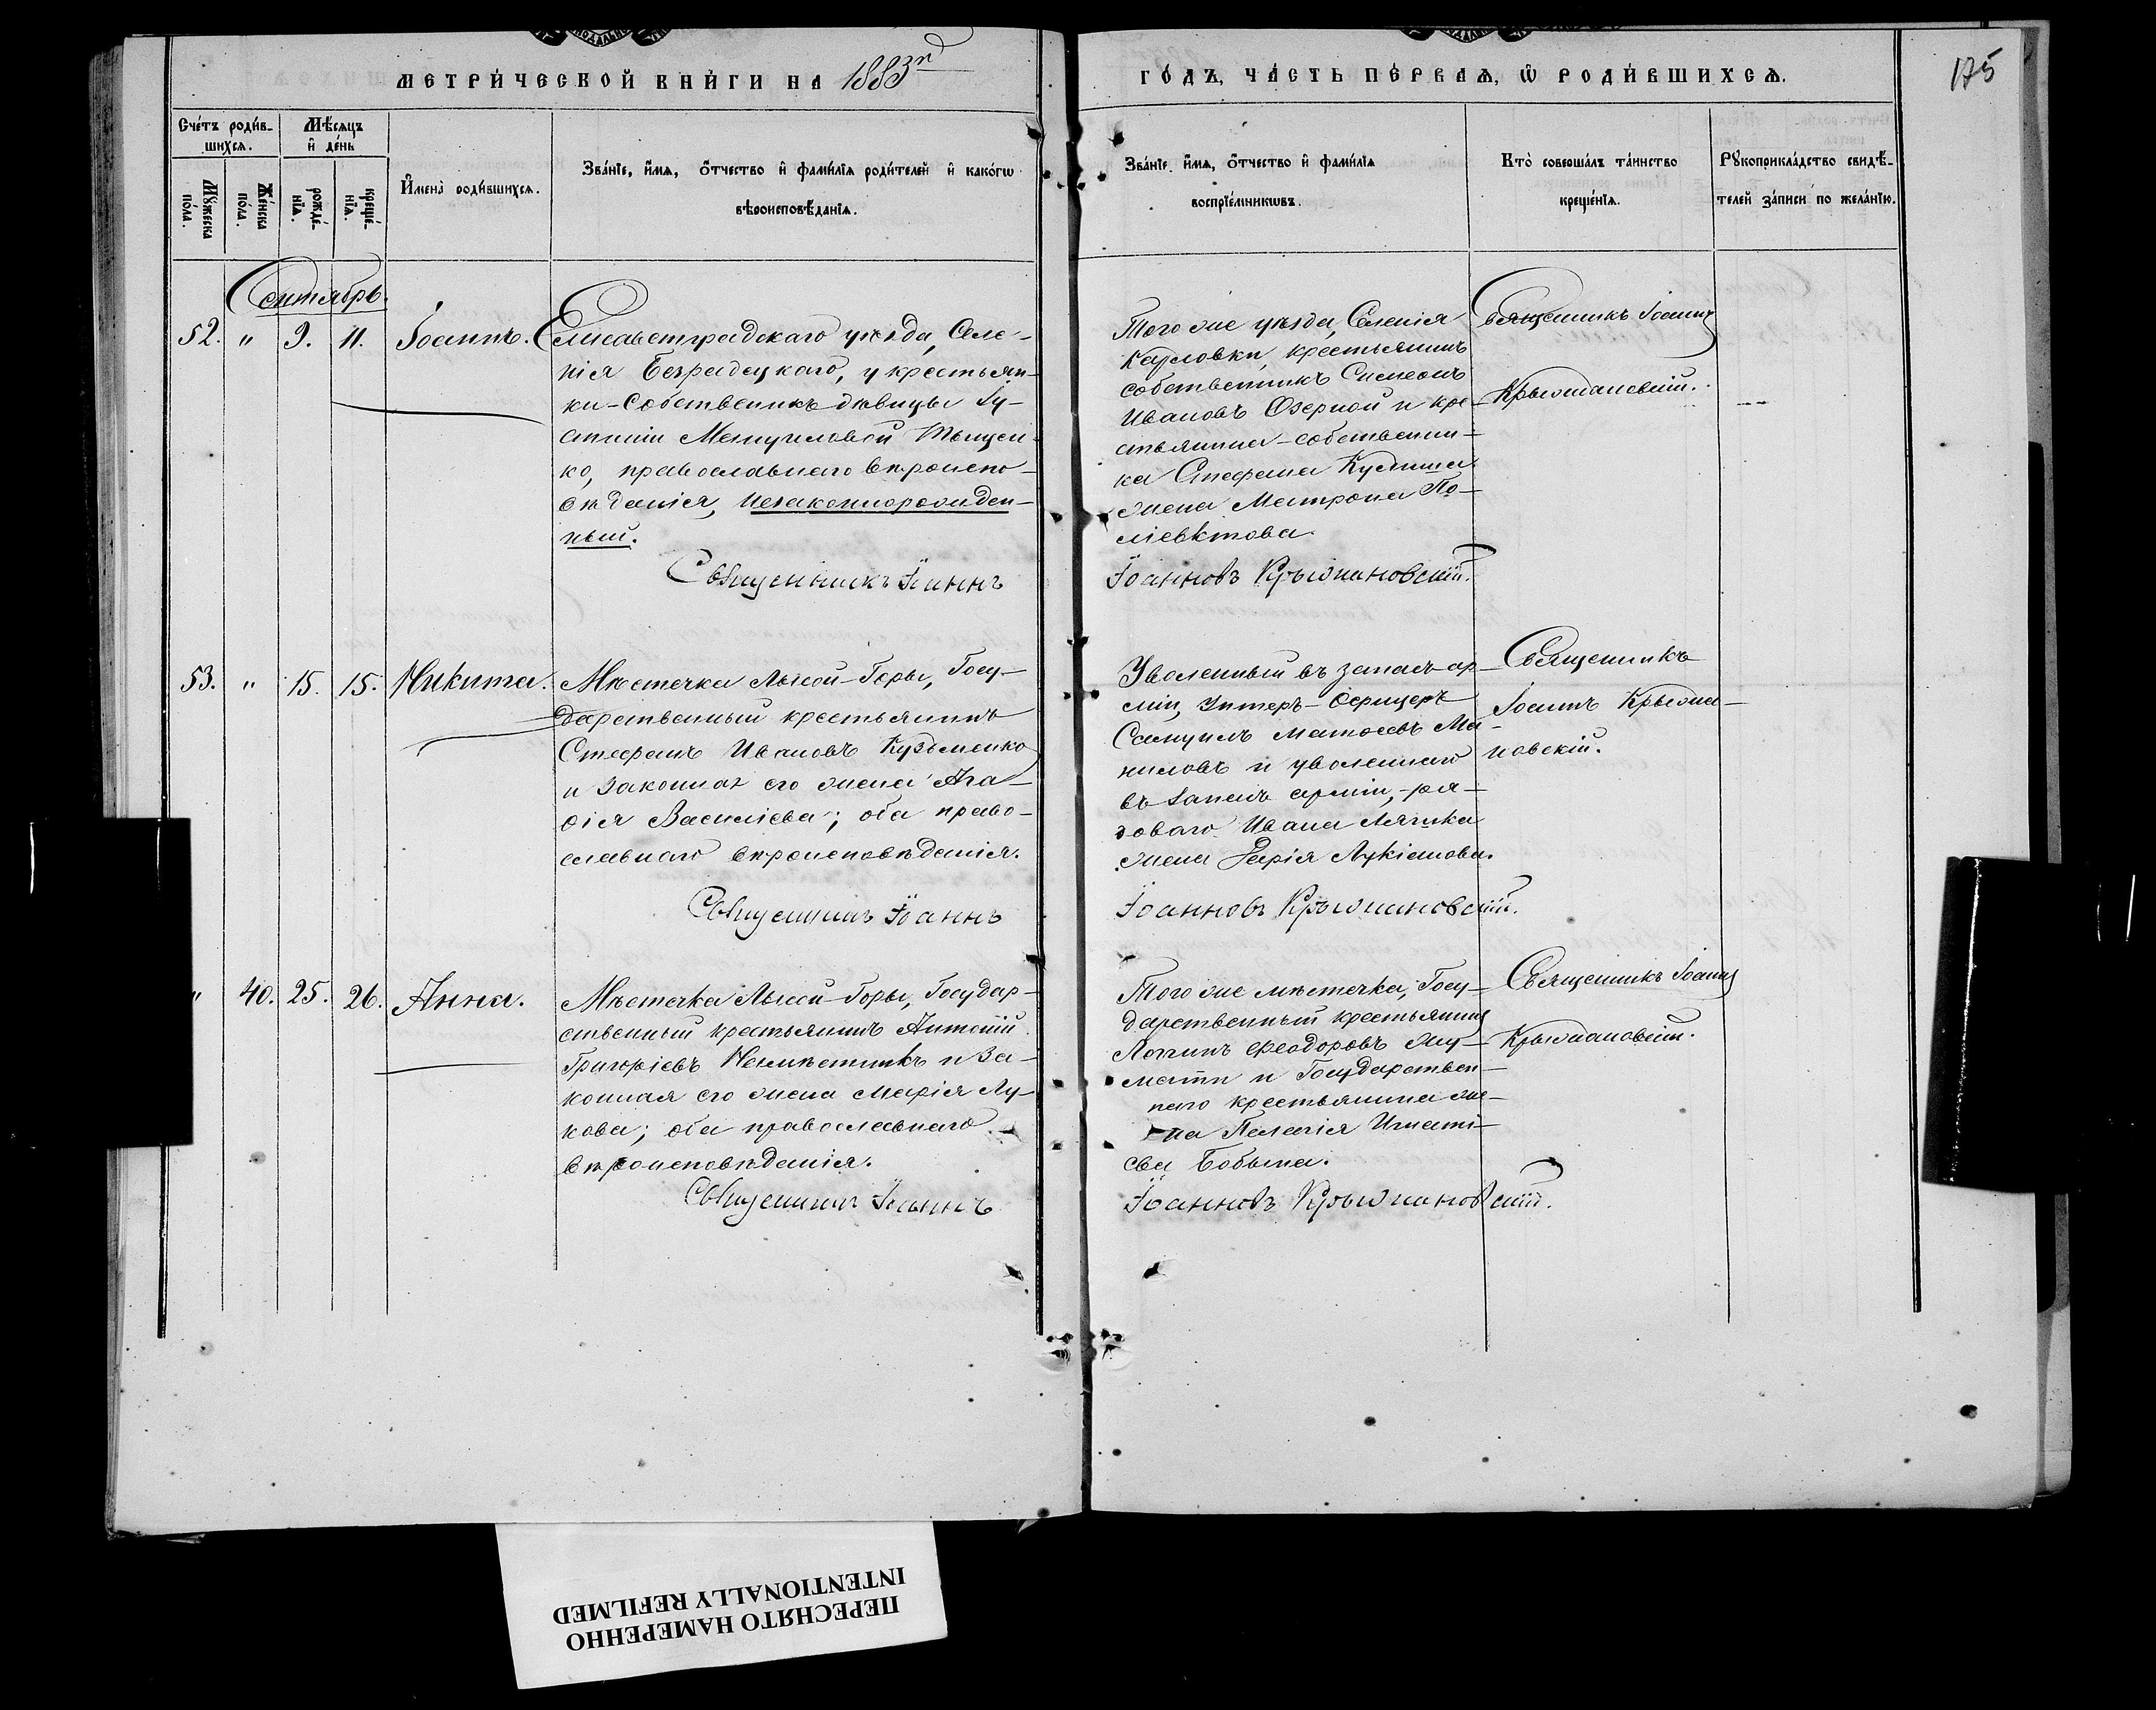 МЕТРИ́ЧЕСКОЙ КНИ́ГИ НА 1883й
ГО́ДЪ, ЧА́СТЬ ПЕ́РВАѦ, Ѡ҆ РОДИ́ВШИХСѦ.
175
Сче́тъ роди́в-
шихсѧ.
Мѣ́сѧцъ
и҆ де́нь
Мꙋ́жеска
по́ла.
Же́нска
по́ла.
рожде́-
нїѧ.
креще́-
нїѧ.
И҆мена̀ роди́вшихсѧ.
Зва́нїе, и҆́мѧ, ѻ҆́тчество и҆ фами́лїѧ роди́телей и҆ како́гѡ
вѣроисповѣ́данїѧ.
Зва́нїе, и҆́мѧ, ѻ҆́тчество и҆ фами́лїѧ
воспрїе́мникѡвъ.
Кто̀ соверша́лъ та́инство
креще́нїѧ.
Рꙋкоприкла́дство свидѣ́-
телей за́писи по жела́нїю.
Сентябрь.
52. " 9. 11. Іоаннъ.
Елисаветградскаго уѣзда, Селе-
нія Безрадецкаго, у крестьян-
ки-собственникъ дѣвицы
Мануиловой
ко, православнаго вѣроиспо-
вѣданія, незаконнорожден-
ный.
Священникъ Іоаннъ
Того же уѣзда, Селенія
Карловки, крестьянинъ
собственникъ Симеонъ
Ивановъ Озерной и кре-
стьянина-собственни-
ка Стефана
жена Матрона По-
ліевктова
Іоанновъ Крыжановскій.
Священникъ Іоаннъ
Крыжановскій.
53. " 15. 15. Никита.
Мѣстечка Лысой-Горы, Госу-
дарственный крестьянинъ
Стефанъ Ивановъ Кузьменко
и законная его жена Ага-
ѳія Василіева; оба право-
славнаго вѣроисповѣданія.
Священникъ Іоаннъ
Уволенный въ запасъ ар-
міи, Унтеръ-Офицеръ
Самуилъ Матѳеевъ Ма-
ниловъ и уволеннаго
въ запасъ арміи, ря-
доваго Ивана
жена Дарія Лукіанова.
Іоанновъ Крыжановскій.
Священникъ
Іоаннъ Крыжа-
новскій.
" 40. 25. 26. Анна.
Мѣстечка Лысой-Горы, Государ-
ственный крестьянинъ Антоній
Григоріевъ и За-
конная его жена Марія Лу-
кова; оба православнаго
вѣроисповѣданія.
Священникъ Іоаннъ
Того же мѣстечка, Госу-
дарственный крестьянинъ
Логгинъ Ѳеодоровъ
и Государствен-
наго крестьянина же-
на Пелагія Игнаті-
ева
Іоанновъ Крыжановскій.
Священникъ Іоаннъ
Крыжановскій.
ПЕРЕСНЯТО НАМЕРЕННО
INTENTIONALLY REFILMED